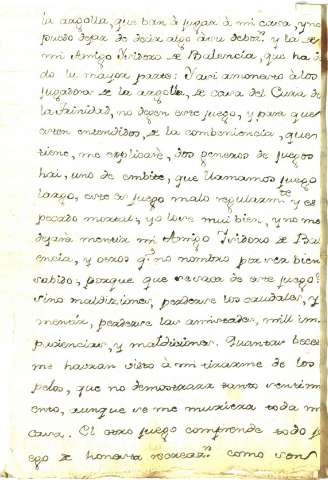 la argolla, que ban à jugar à mi casa, y no
puedo dejar de decir algo à su deboᶜⁿ y la de
mi Amigo Ysidoro de Balencia, que ha
do lu mayor parte: Y asi amonesto à los
jugadores de la argolla, de casa del Cura de
la Trinidad, no dejen este juego, y para que
esten entendidos, de la combeniencia, que
tiene, me explicarè, dos generos de juegos
hai, uno de embite, que llamamos juego
largo, este es juego malo regularmᵗᵉ y es
pecado mortal, yo lo se mui bien, y no me
dejarà mentir mi Amigo Ysidoro de Bal
encia, y otros qᵉ no nombro por ser bien
sabido, porque que se saca de este juego?
sino maldiciones, perderse los caudales, y
mentir, perderse las amistades, mill im
paciencias, y maldiciones. Quantas beces
me habran visto à mi tirarme de los
pelos, que no demostrara tanto sentimi
ento, aunque se me muriera toda mi
casa. El otro juego comprende todo ju
ego de honesta recreazⁿ como son